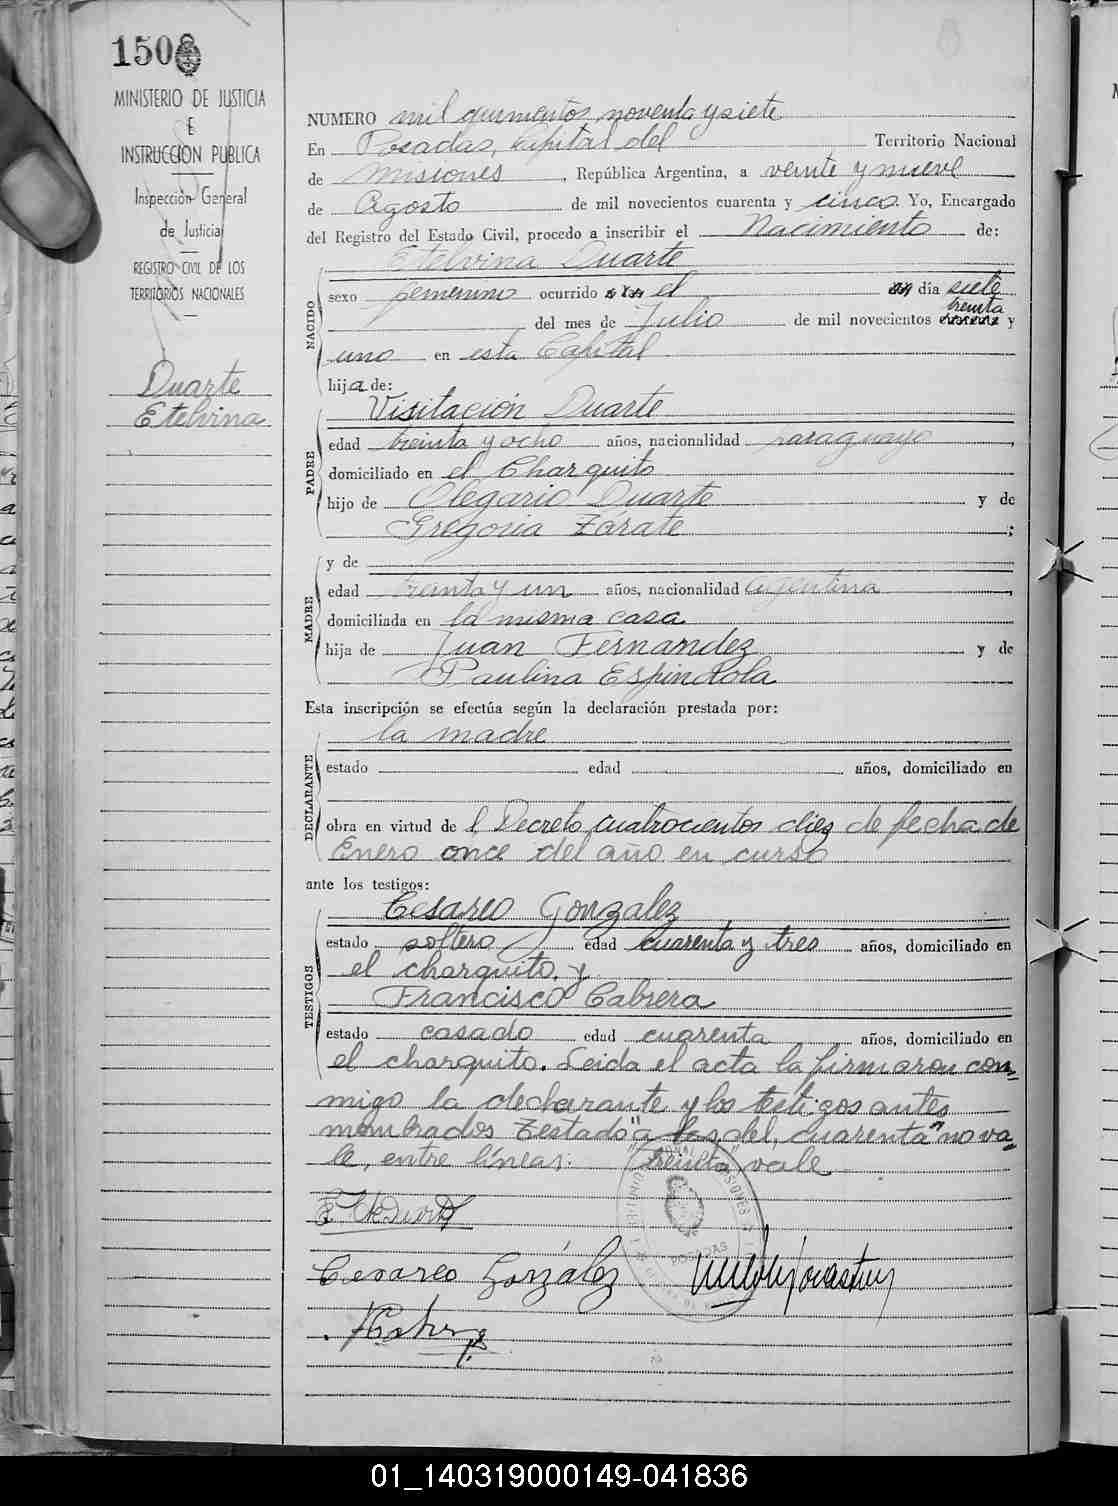 150
MINISTERIO DE JUSTICIA
E
INSTRUCCIÓN PUBLICA
Inspección General
de Justicia
REGISTRO CIVIL DE LOS
TERRITORIOS NACIONALES
Duarte
Etelvina
NUMERO mil quinientos noventa y siete
En Posadas, Capital del Territorio Nacional
de Misiones, República Argentina, a veinte y nueve
de Agosto de mil novecientos cuarenta y cinco. Yo, Encargado
del Registro del Estado Civil, procedo a inscribir el Nacimiento de:
Etelvina Duarte
NACIDO
sexo femenino ocurrido el día siete
treinta
del mes de Julio de mil novecientos y
uno en esta Capital
hija de:
PADRE
Visitación Duarte
edad treinta y ocho años, nacionalidad paraguayo,
domiciliado en el Charquito
hijo de Olegario Duarte y de
Gregoria Zárate;
MADRE
y de
edad treinta y un años, nacionalidad argentina,
domiciliada en la misma casa
hija de Juan Fernandez y de
Paulina Espindola
Esta inscripción se efectúa según la declaración prestada por:
DECLARANTE
la madre
estado edad años, domiciliado en
obra en virtud de l Decreto cuatrocientos diez de fecha de
Enero once del año en curso
ante los testigos:
TESTIGOS
Cesareo Gonzalez
estado soltero edad cuarenta y tres años, domiciliado en
el charquito, y
Francisco Cabrera
estado casado edad cuarenta años, domiciliado en
el charquito. Leida el acta la firmaron con=
migo la declarante y los testigos antes
mombrados Testado "a las, del, cuarenta" no va=
le, entre líneas: "treinta" vale
Cesareo González
POSADAS
01_140319000149-041836